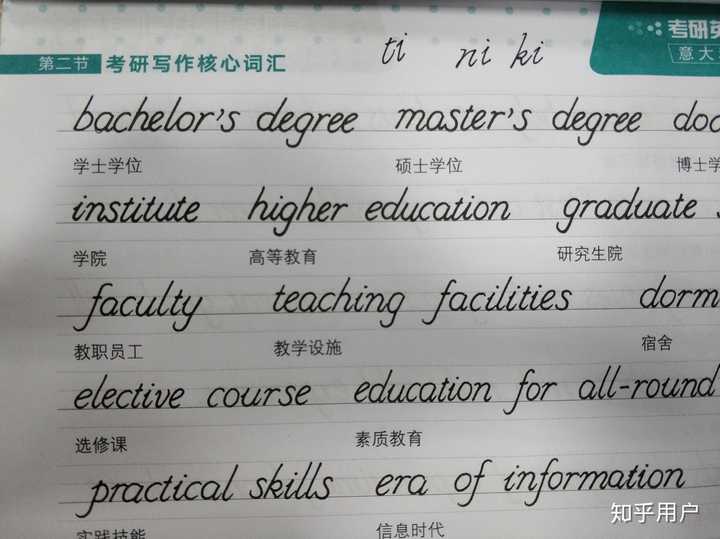 考研英
意大
第二节 考研写作核心词汇 ti ni ki
bachelor's degree master's degree doc
学士学位 硕士学位 博士学
institute higher education graduate
学院 高等教育 研究生院
faculty teaching facilities dorm
教职员工 教学设施 宿舍
elective course education for all-round
选修课 素质教育
practical skills era of information
实践技能 信息时代
知乎用户